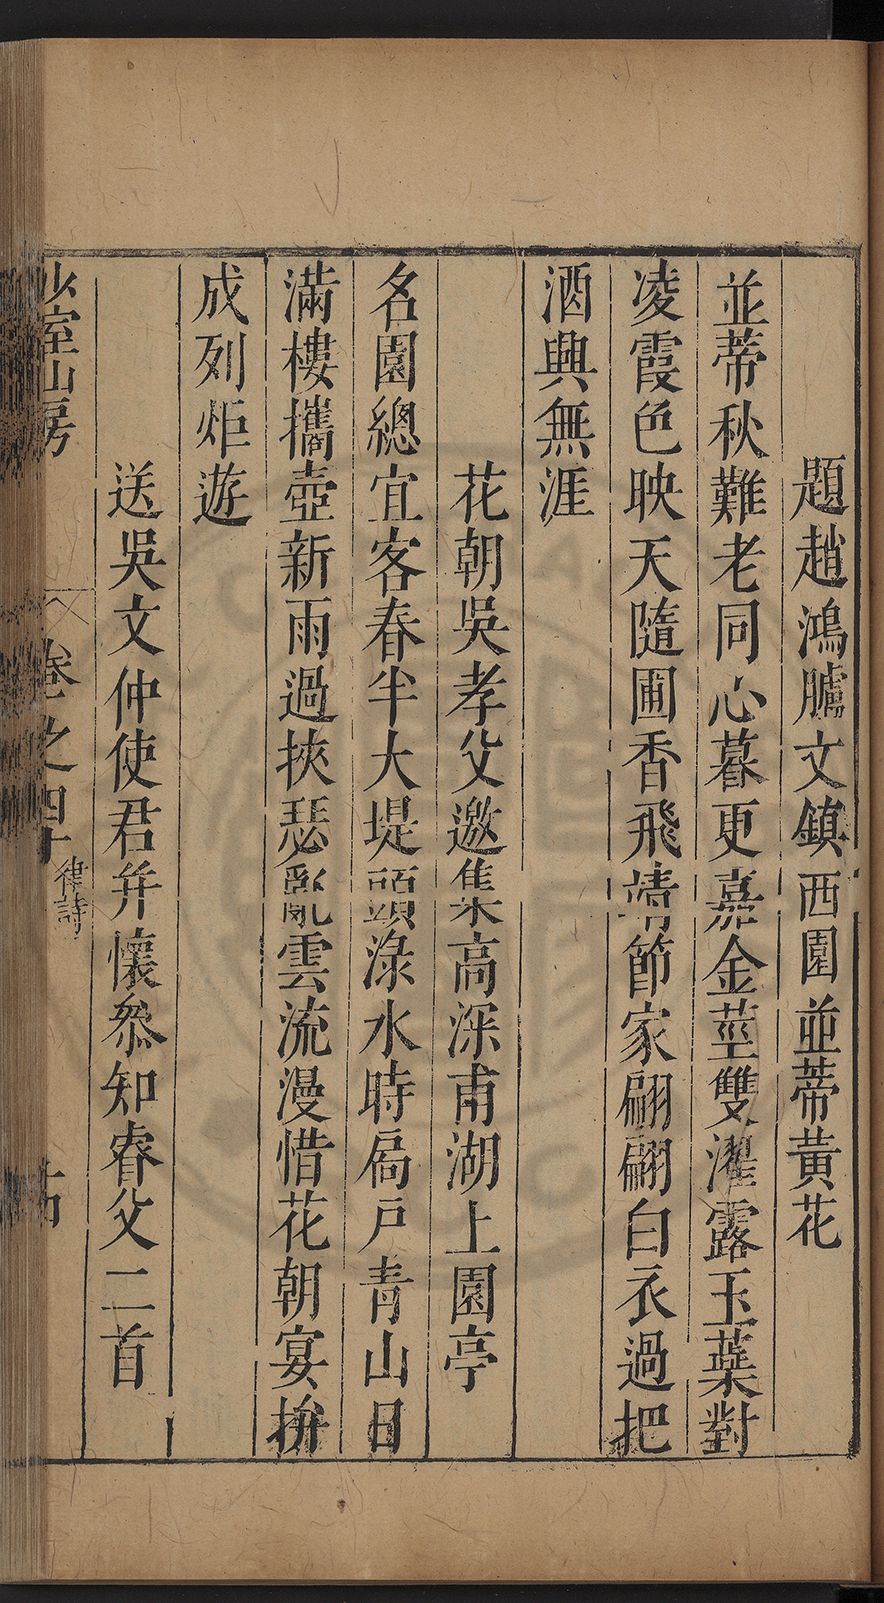 題趙鴻臚文鎮西園並蒂黃花
並蒂秋難老同心暮更嘉金莖雙濯露玉葉對
凌霞色映天隨圃香飛靖節家翩翩白衣過把
酒興無涯
花朝吳孝父邀集高深甫湖上園亭
名園總宜客春半大堤頭淥水時扃戶青山日
滿樓攜壺新雨過挾瑟亂雲流漫惜花朝宴拚
成列炬遊
送吳文仲使君并懷叅知睿父二首
少室山房
卷之四十
律詩
十四